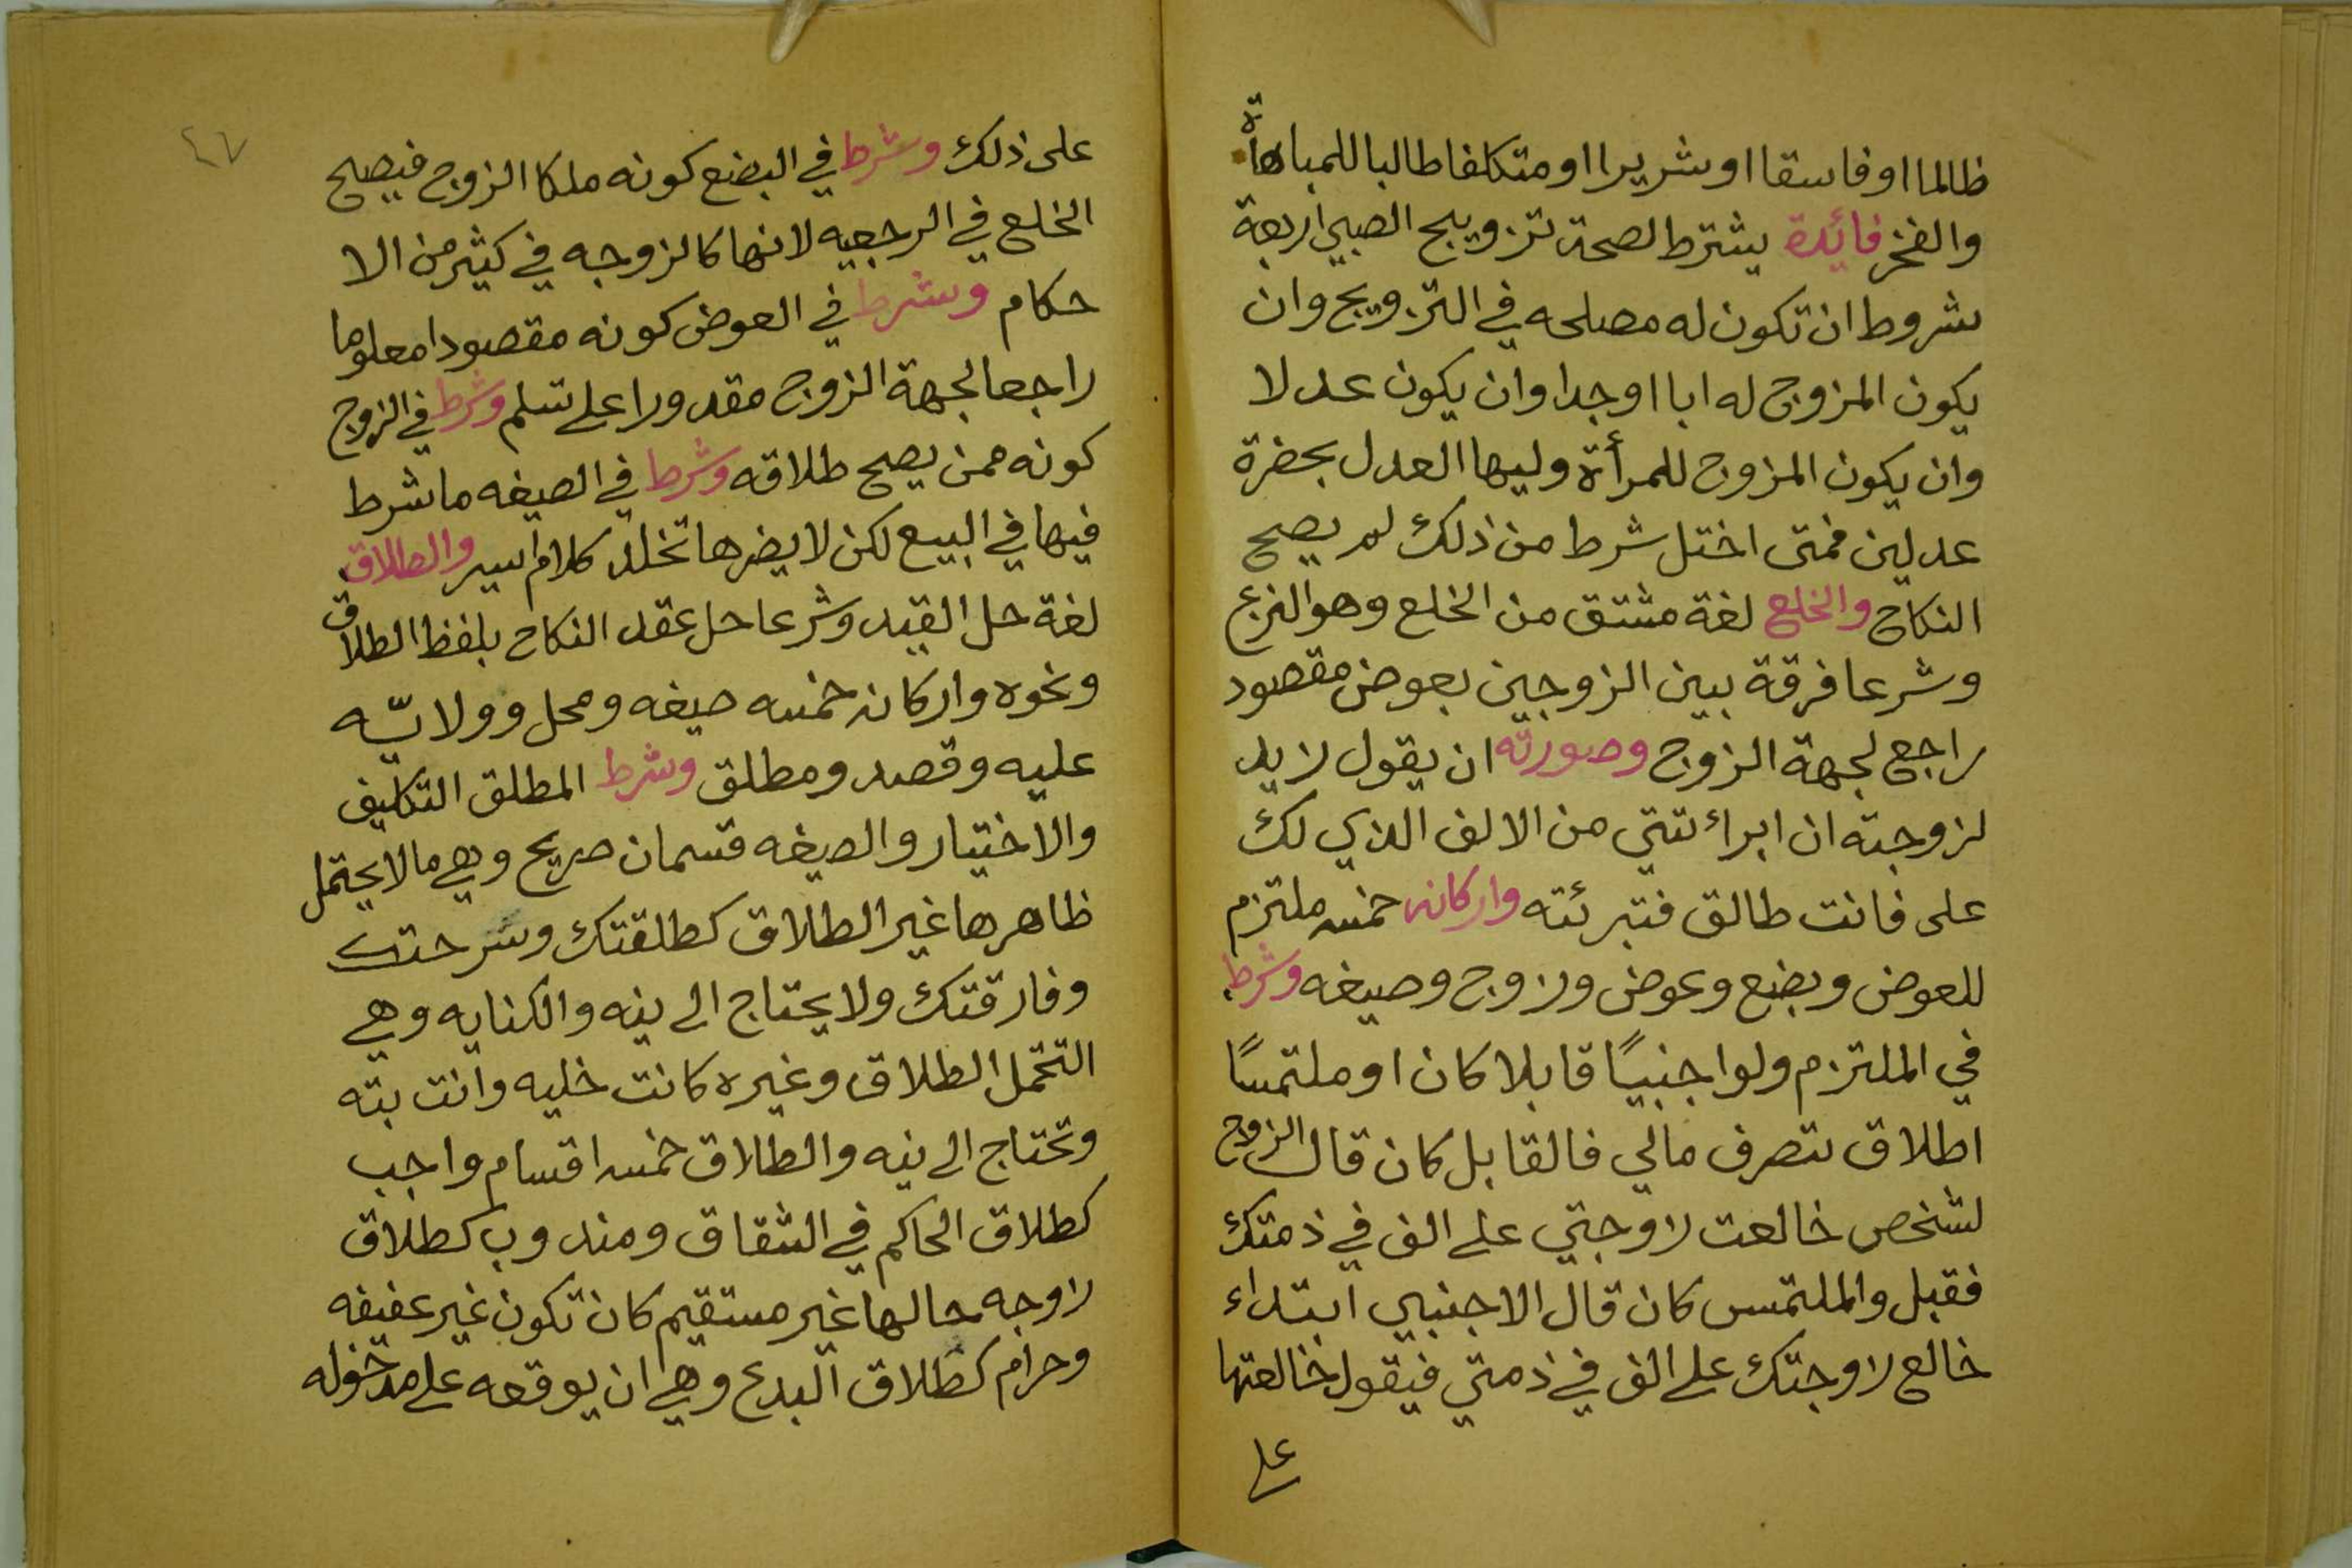 ظالما او فاسقا او شريرا او متكلفا طالبا للمباهاة
والفخر فائدة يشترط لصحة تزويج الصبي اربعة
شروط ان تكون له مصلحه في التزويج وان
يكون المزوج له ابا او جدا وان يكون عدلا
وان يكون المزوج للمرأة وليها العدل بحضرة
عدلين فمتى اختل شرط من ذلك لم يصح
النكاح والخلع لغة مشتق من الخلع وهو النزع
وشرعا فرقة بين الزوجين بعوض مقصود
راجع لجهة الزوج وصورته ان يقول زيد
لزوجته ان ابرائتني من الالف الذي لك
على فانت طالق فتبرئته واركانه خمسه ملتزم
للعوض وبضع وعوض وزوج وصيغه وشرط
في الملتزم ولو اجنبيًا قابلا كان او ملتمسًا
اطلاق تصرف مالي فالقابل كان قال الزوج
لشخص خالعت زوجتي على الف في ذمتك
فقبل والملتمس كان قال الاجنبي ابتداء
خالع زوجتك على الف في ذمتي فيقول خالعتها
على
٤٧
على ذلك وشرط في البضع كونه ملكا الزوج فيصح
الخلع في الرجعيه لانها كالزوجه في كثير من الا
حكام وشرط في العوض كونه مقصودا معلوما
راجعا لجهة الزوج مقدورا على تسلم وشرط في الزوج
كونه ممن يصح طلاقه وشرط في الصيغه ما شرط
فيها في البيع لكن لا يضرها تخلل كلام يسير والطلاق
لغة حل القيد وشرعا حل عقد النكاح بلفظ الطلاق
ونحوه واركانه خمسه صيغه ومحل وولايّه
عليه وقصد ومطلق وشرط المطلق التكليف
والاختيار والصيغه قسمان صريح وهي ما لا يحتمل
ظاهرها غير الطلاق كطلقتك وسرحتك
وفارقتك ولا يحتاج الى نيه والكنايه وهي
التحمل الطلاق وغيره كانت خليه وانت بته
وتحتاج الى نيه والطلاق خمسه اقسام واجب
كطلاق الحاكم في الشقاق ومندوب كطلاق
زوجه حالها غير مستقيم كان تكون غير عفيفه
وحرام كطلاق البدع وهي ان يوقعه على مدخوله